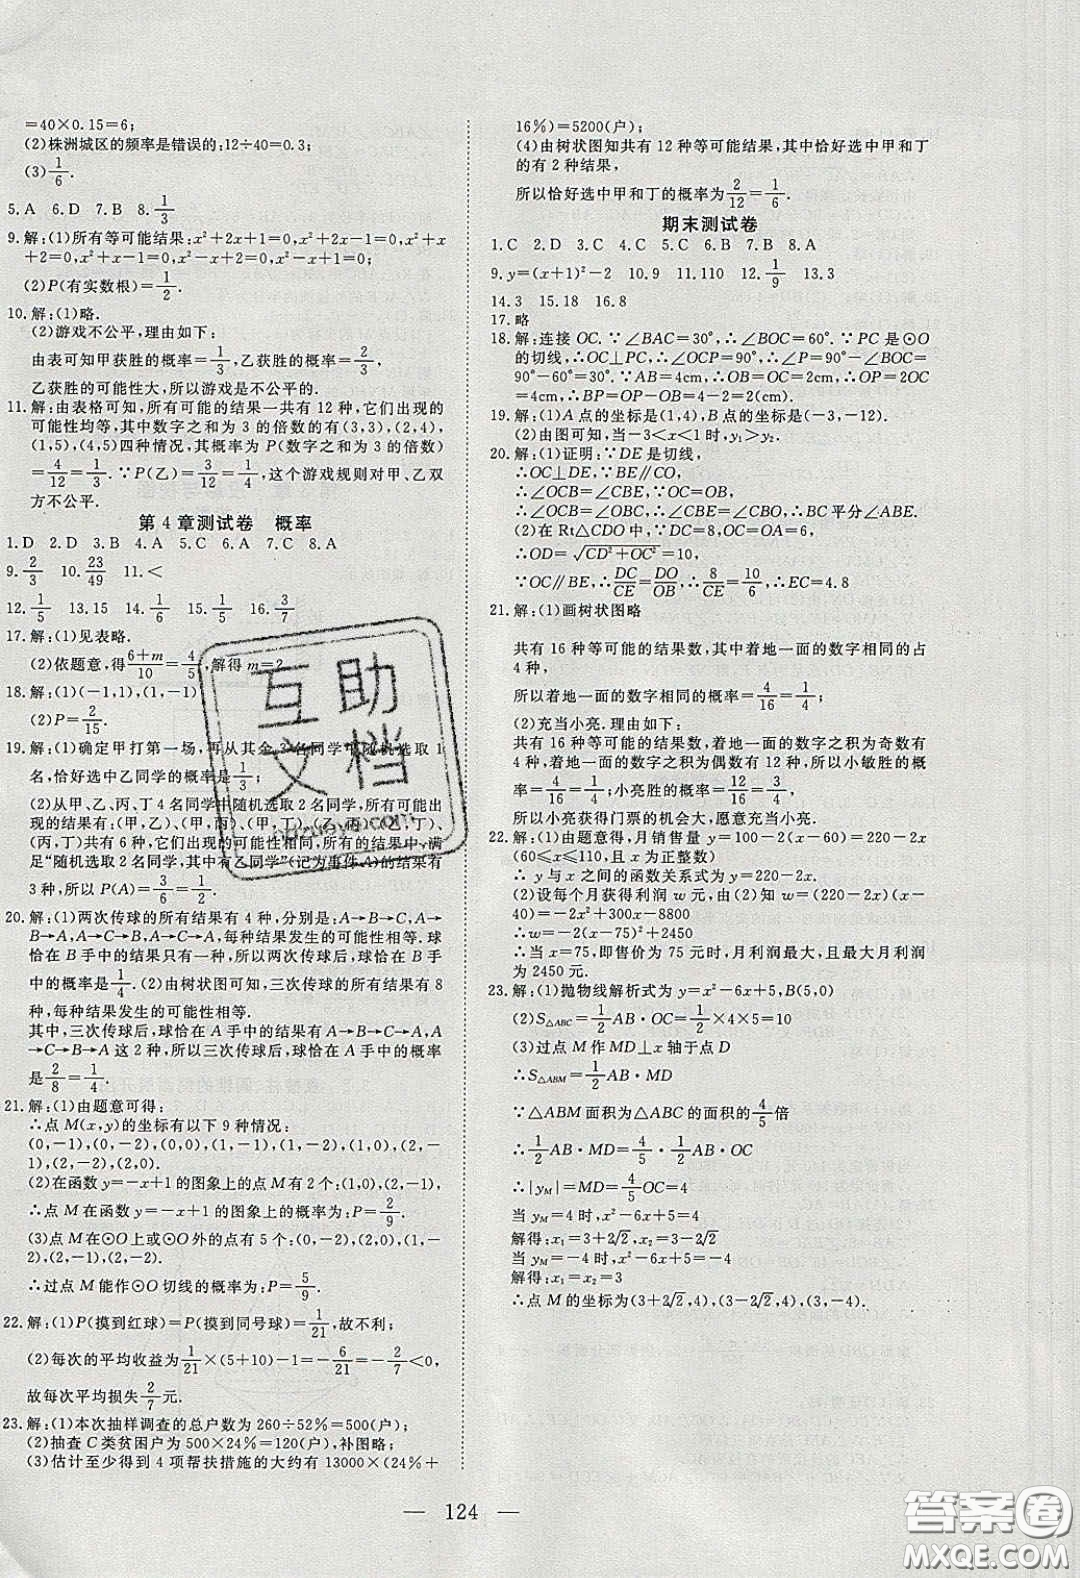 =40×0.15=6;
(2)株洲城区的频率是错误的;12÷40=0.3;
(3)1/6.
5.A 6.D 7.B 8.1/3
9.解:(1)所有等可能结果:x²+2x+1=0,x²+x+1=0,x²+x
+2=0,x²+x-1=0,x²-x-2=0,x²-x+1=0
(2)P(有实数根)=1/2.
10.解:(1)略.
(2)游戏不公平,理由如下:
由表可知甲获胜的概率=1/3,乙获胜的概率=2/3,
乙获胜的可能性大,所以游戏是不公平的.
11.解:由表格可知,所有可能的结果一共有 12 种,它们出现的
可能性均等,其中数字之和为 3 的倍数的有(3,3),(2,4),
(1,5),(4,5)四种情况,其概率为 P(数字之和为 3 的倍数)
=4/12=1/3.∵P(乙)=1/3,这个游戏规则对甲、乙双
方不公平.
第 4 章测试卷 概率
1.D 2.D 3.B 4.A 5.C 6.A 7.C 8.A
9.2/3 10.23/49 11.<
12.1/5 13.15 14.1/6 15.1/5 16.3/7
17.解:(1)见表略.
(2)依题意,得(6+m)/10=4/5,解得 m=2
18.解:(1)(-1,1),(1,-1)
(2)P=2/15.
19.解:(1)确定甲打第一场,再从其余 3 名同学中随机选取 1
名,恰好选中乙同学的概率是1/3;
(2)从甲、乙、丙、丁 4 名同学中随机选取 2 名同学,所有可能
出现的结果有:(甲,乙)、(甲,丙)、(甲,丁)、(乙,丙)、(乙,丁)、
(丙,丁)共有 6 种,它们出现的可能性相同,所有的结果中,满
足“随机选取 2 名同学,其中有乙同学”(记为事件 A)的结果有
3 种,所以 P(A)=3/6=1/2.
20.解:(1)两次传球的所有结果有 4 种,分别是:A→B→C,A→
B→A,A→C→B,A→C→A,每种结果发生的可能性相等.球
恰在 B 手中的结果只有一种,所以两次传球后,球恰在 B 手
中的概率是1/4.(2)由树状图可知,三次传球的所有结果有 8
种,每种结果发生的可能性相等.
其中,三次传球后,球恰在 A 手中的结果有 A→B→C→A,
A→C→B→A 这 2 种,所以三次传球后,球恰在 A 手中的概率
是2/8=1/4.
21.解:(1)由题意可得:
∴点 M(x,y)的坐标有以下 9 种情况:
(0,-1),(0,-2),(0,0),(1,-1),(1,-2),(1,0),(2,
-1),(2,-2),(2,0).
(2)在函数 y=-x+1 的图象上的点 M 有 2 个:(1,0),(2,-1),
∴点 M 在函数 y=-x+1 的图象上的概率为:P=2/9.
(3)点 M 在⊙O 上或⊙O 外的点有 5 个:(0,-2),(1,-2),
(2,-1),(2,-2),(2,0).
∴过点 M 能作⊙O 切线的概率为:P=5/9.
22.解:(1)P(摸到红球)=P(摸到同号球)=1/21,故不利;
(2)每次的平均收益为1/21×(5+10)-1=-6/21=-2/7<0,
故每次平均损失2/7元.
23.解:(1)本次抽样调查的总户数为 260÷52%=500(户);
(2)抽查 C 类贫困户为 500×24%=120(户),补图略;
(3)估计至少得到 4 项帮扶措施的大约有 13000×(24%+
16%)=5200(户);
(4)由树状图知共有 12 种等可能结果,其中恰好选中甲和丁
的有 2 种结果,
所以恰好选中甲和丁的概率为2/12=1/6.
期末测试卷
1.C 2.D 3.C 4.C 5.C 6.B 7.B 8.A
9.y=(x+1)²-2 10.9 11.110 12.1/9 13.3
14.3 15.18 16.8
17.略
18.解:连接 OC.∵∠BAC=30°,∴∠BOC=60°.∵PC 是⊙O
的切线,∴OC⊥PC,∴∠OCP=90°,∴∠CPO=90°-60°=
90°=30°.∵AB=4cm,∴OB=OC=2cm.∴OP=2OC
=4cm,∴BP=OP-OB=4-2=2(cm).
19.解:(1)A 点的坐标是(1,4),B 点的坐标是(-3,-12).
(2)由图可知,当-3<x<1 时,y₁>y₂.
20.解:(1)证明:∵DE 是切线,
∴OC⊥DE,∵BE∥CO,
∴∠OCB=∠CBE,∵OC=OB,
∴∠OCB=∠OBC,∴∠CBE=∠CBO,∴BC 平分∠ABE.
(2)在 Rt△CDO 中,∵DC=8,OC=OA=6,
∴OD=√(CD²+OC²)=10,
∵OC∥BE,∴DC/CE=DO/OB,∴8/CE=10/6,∴EC=4.8
21.解:(1)画树状图略
共有 16 种等可能的结果数,其中着地一面的数字相同的占
4 种,
所以着地一面的数字相同的概率=4/16=1/4;
(2)充当小亮.理由如下:
共有 16 种等可能的结果数,着地一面的数字之积为奇数有
4 种,着地一面的数字之积为偶数有 12 种,所以小敏胜的概率
=4/16=1/4;小亮胜的概率=12/16=3/4,
所以小亮获得门票的机会大,愿意充当小亮.
22.解:(1)由题意得,月销售量 y=100-2(x-60)=220-2x
(60≤x≤110,且 x 为正整数)
∴ y 与 x 之间的函数关系式为 y=220-2x.
(2)设每个月获得利润 w 元,由(2)知 w=(220-2x)(x-
40)=-2x²+300x-8800
∴w=-2(x-75)²+2450
∴当 x=75,即售价为 75 元时,月利润最大,且最大月利润
为 2450 元.
23.解:(1)抛物线解析式为 y=x²-6x+5,B(5,0)
(2)S△ABC=1/2AB·OC=1/2×4×5=10
(3)过点 M 作 MD⊥x 轴于点 D
∴S△ABM=1/2AB·MD
∵△ABM 面积为△ABC 面积的4/5倍
∴1/2AB·MD=4/5·1/2AB·OC
∴|yM|=MD=4/5OC=4
当 yM=4 时,x²-6x+5=4
解得:x₁=3+2√2,x₂=3-2√2
当 yM=-4 时,x²-6x+5=-4
解得:x₁=x₂=3
∴点 M 的坐标为(3+2√2,4),(3-2√2,4),(3,-4).
— 124 —
互助
文档
答案圈
MXQE.COM